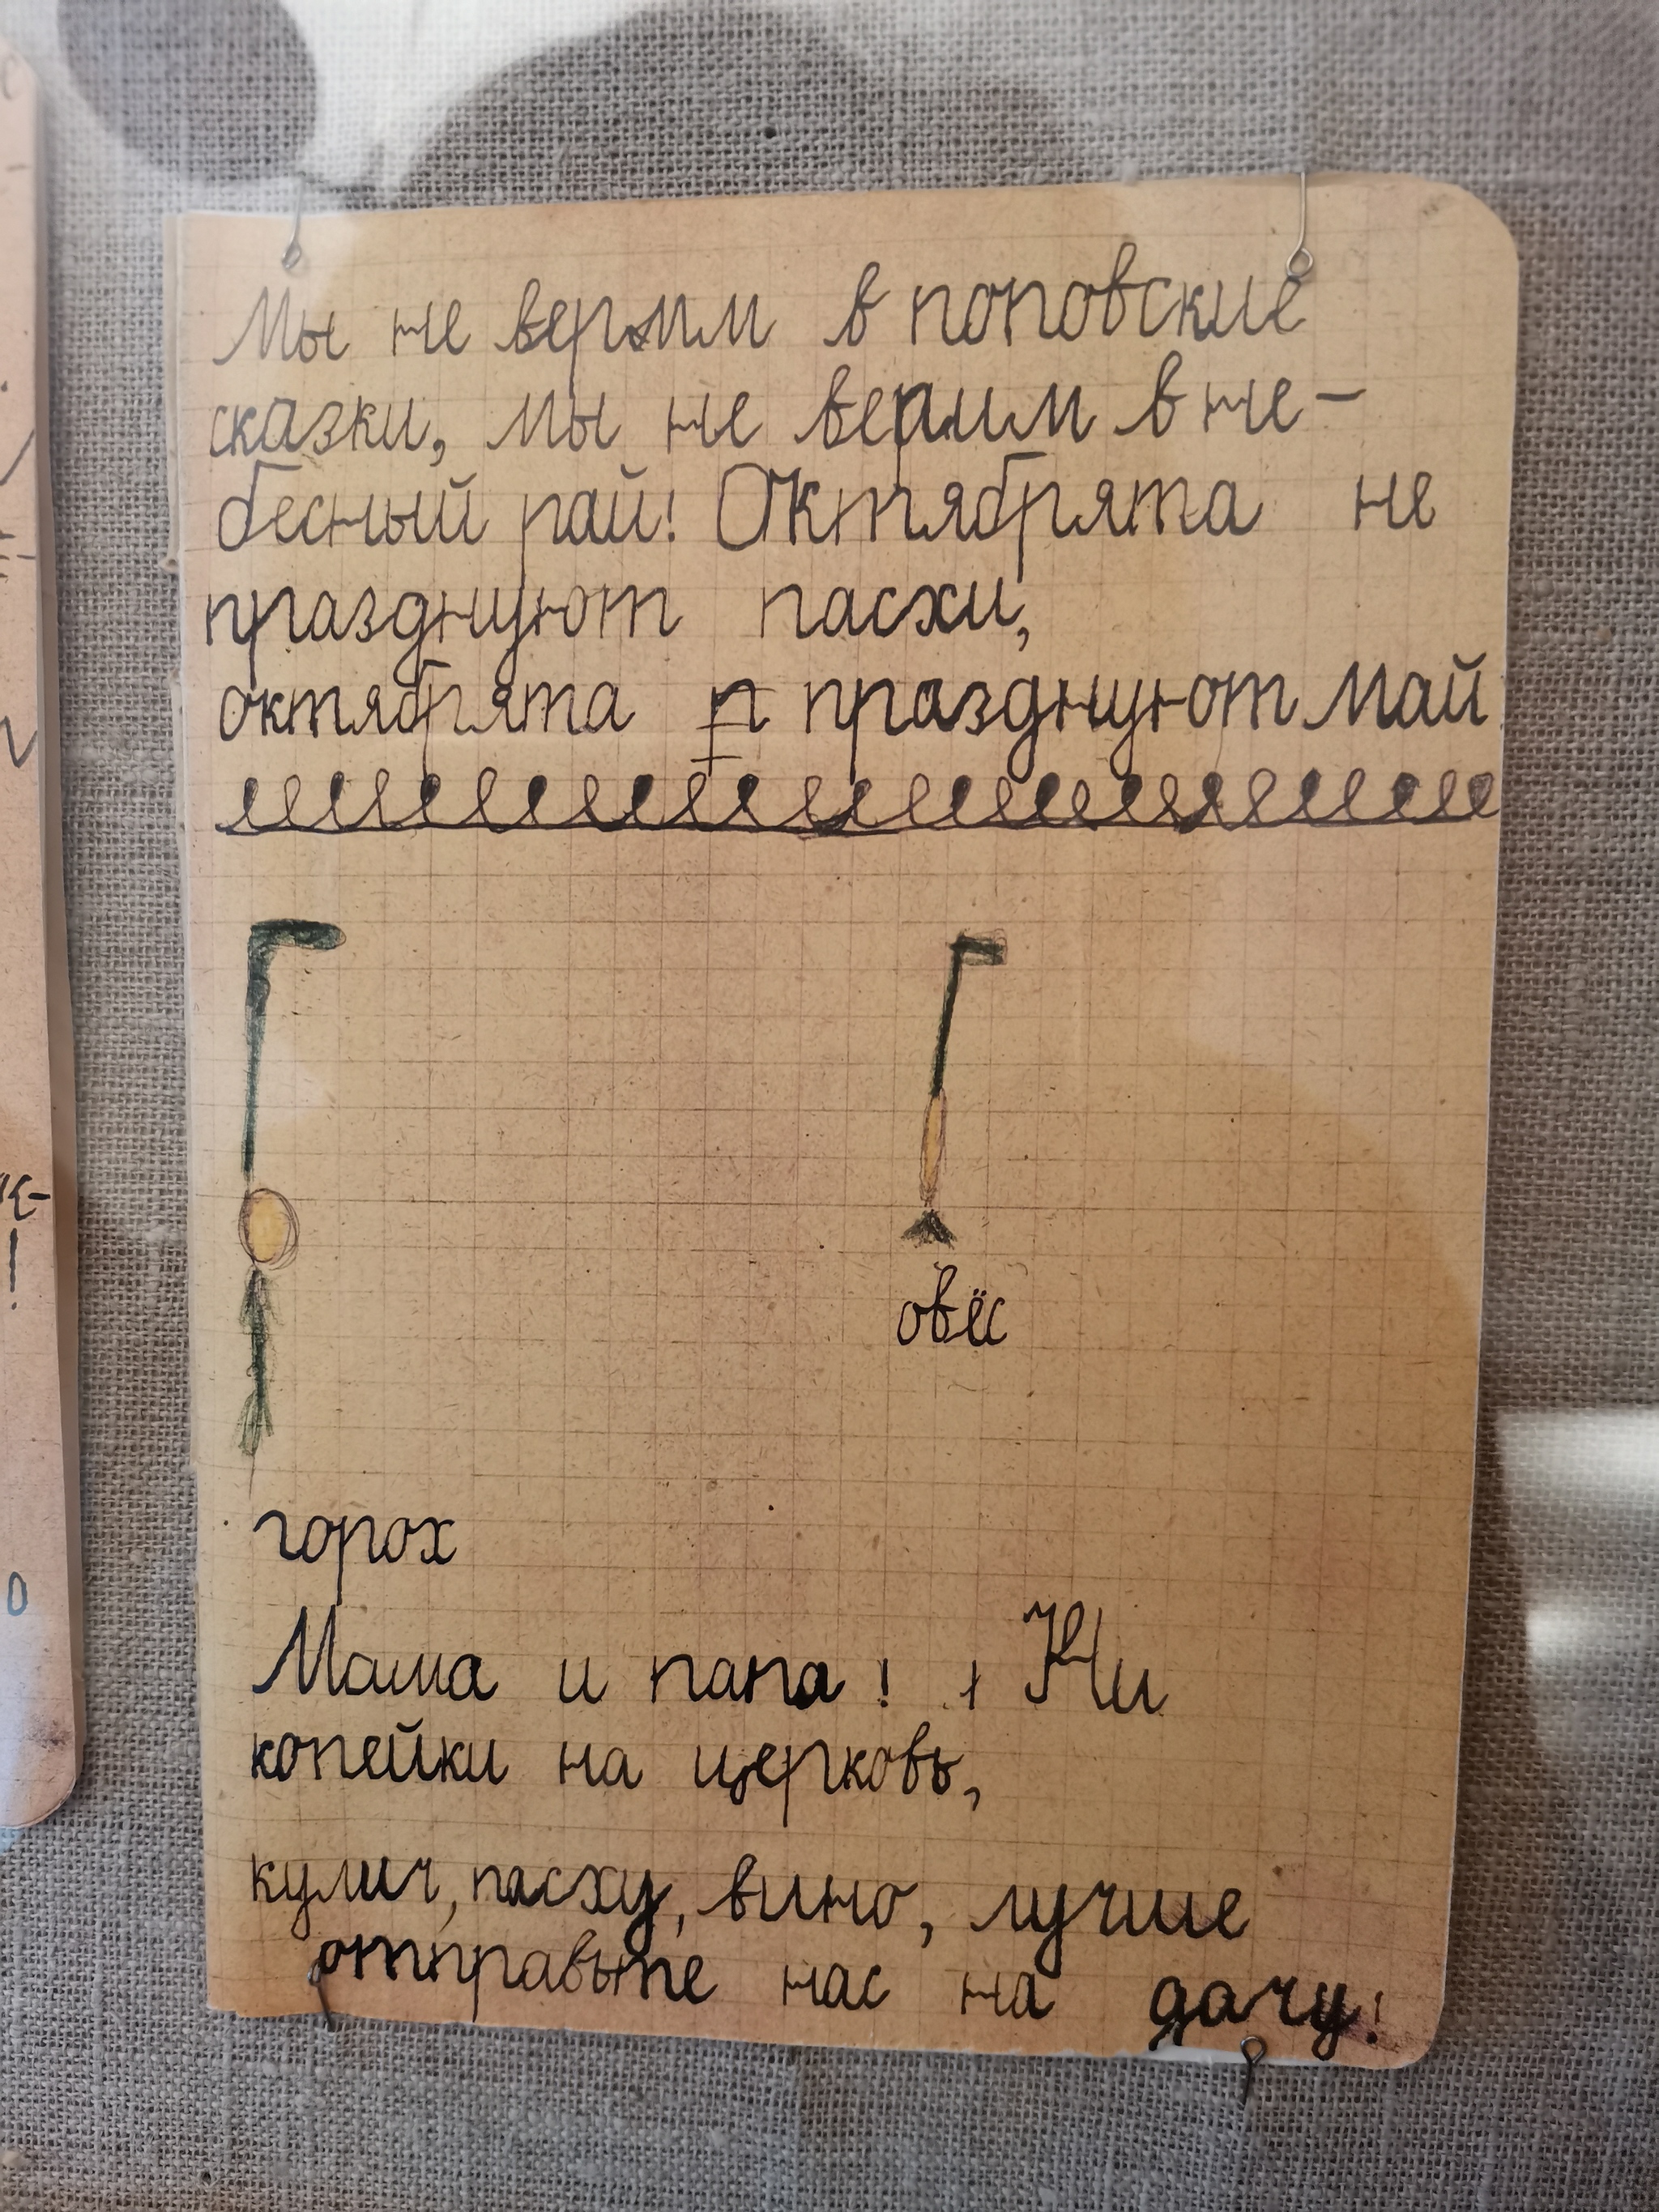 Мы не верим в поповские
сказки, мы не верим в не-
бесный рай! Октябрята не
празднуют пасхи,
октябрята п празднуют май
овёс
горох
Мама и папа! Ни
копейки на церковь,
кулич, пасху, вино, лучше
отправьте нас на дачу!